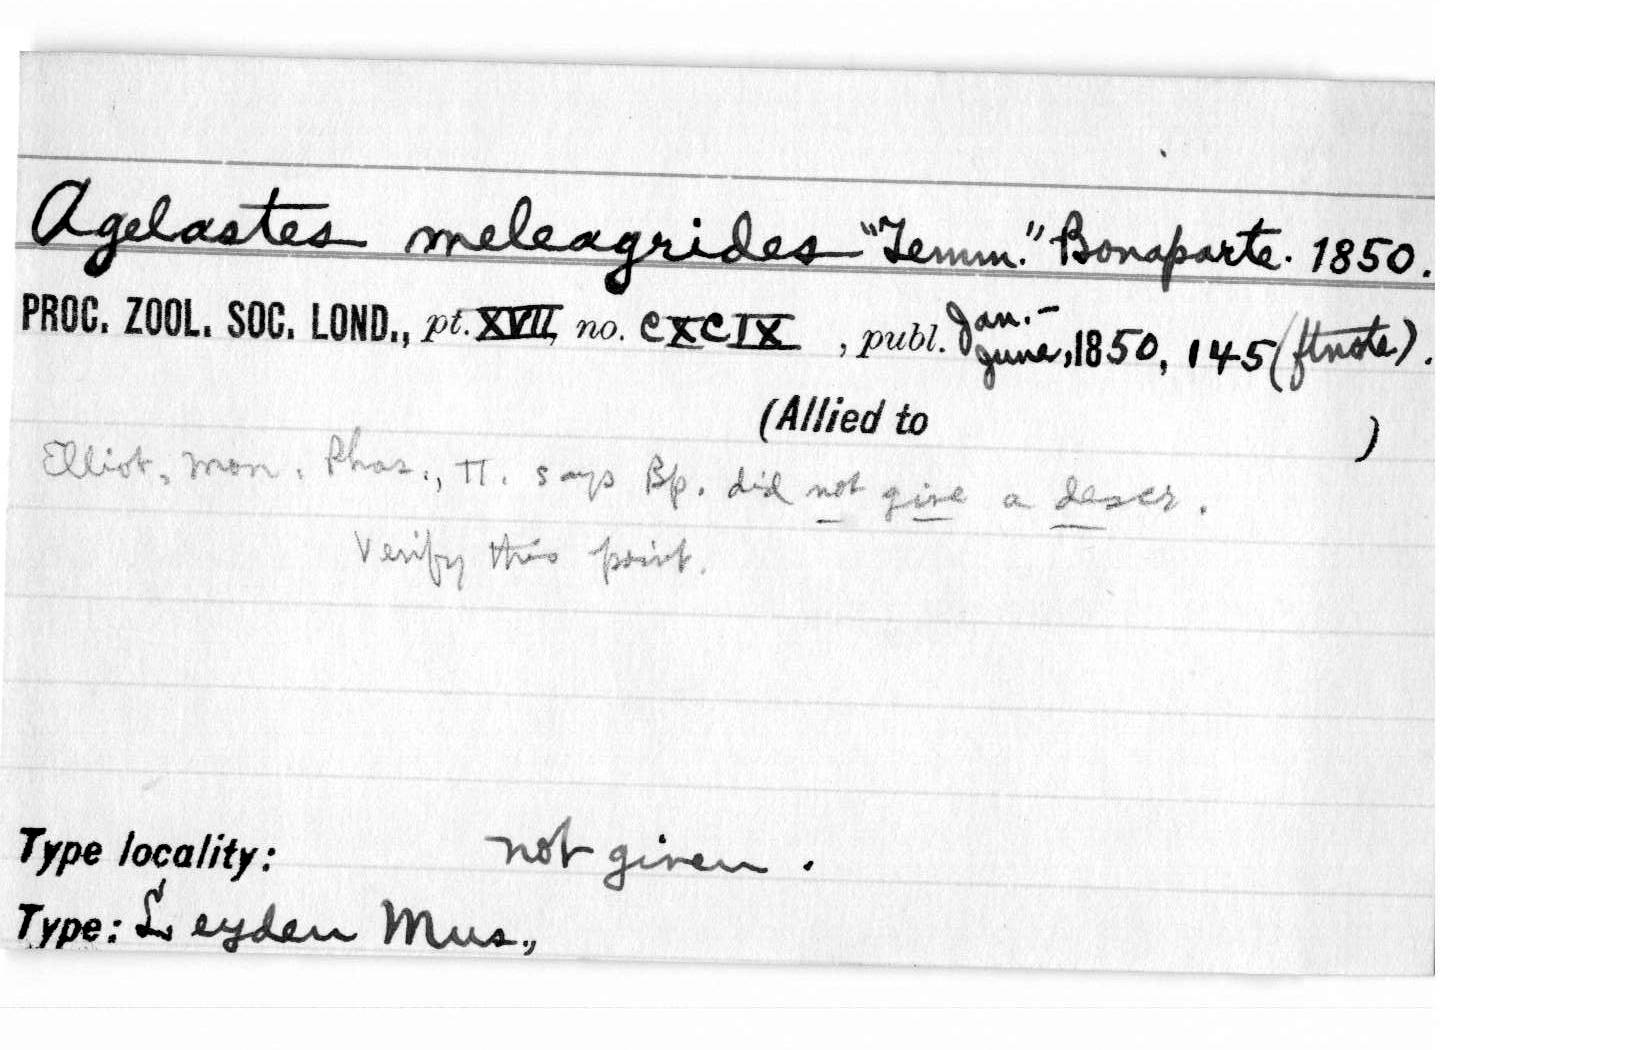 Agelastes meleagrides "Temm." Bonaparte. 1850.
PROC. ZOOL. SOC. LOND., pt. XVII, no. CXCIX , publ. Jan.- June, 1850, 145 (ftnote).
(Allied to )
Elliot, Mon. Phas., II. says Bp. did not give a descr.
Verify this point.
Type locality: not given.
Type: Leyden Mus.,